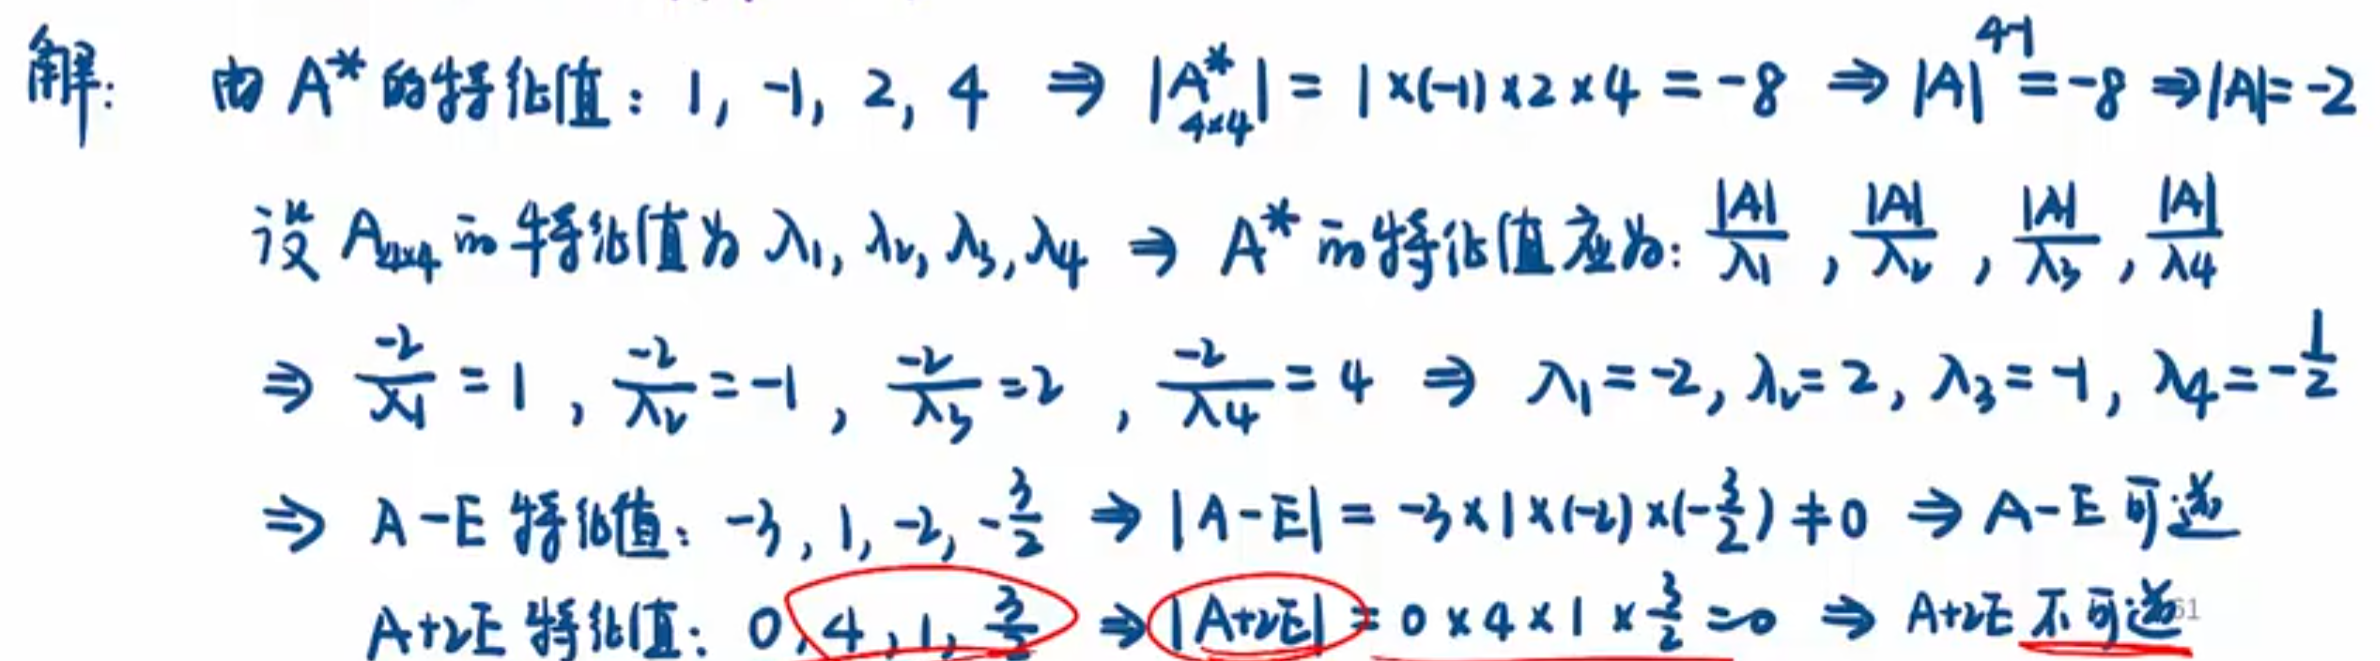 解: 由 A* 的特征值: 1, -1, 2, 4 ⇒ |A*₄ₓ₄| = 1×(-1)×2×4 = -8 ⇒ |A|⁴⁻¹ = -8 ⇒ |A| = -2
设 A₄ₓ₄ 的特征值为 λ₁, λ₂, λ₃, λ₄ ⇒ A* 的特征值应为: |A|/λ₁, |A|/λ₂, |A|/λ₃, |A|/λ₄
⇒ -2/λ₁ = 1, -2/λ₂ = -1, -2/λ₃ = 2, -2/λ₄ = 4 ⇒ λ₁ = -2, λ₂ = 2, λ₃ = -1, λ₄ = -1/2
⇒ A-E 特征值: -3, 1, -2, -3/2 ⇒ |A-E| = -3×1×(-2)×(-3/2) ≠ 0 ⇒ A-E 可逆
A+2E 特征值: 0, 4, 1, 3/2 ⇒ |A+2E| = 0×4×1×3/2 = 0 ⇒ A+2E 不可逆